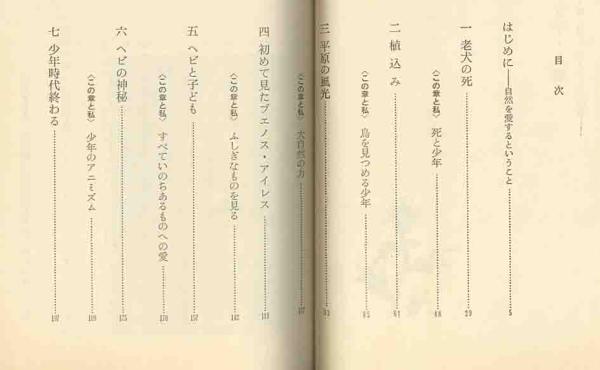 目次
はじめに——自然を愛するということ 5
一 老犬の死 29
〈この章と私〉 死と少年 48
二 植込み 61
〈この章と私〉 鳥を見つめる少年 85
三 平原の風光
〈この章と私〉 大自然の力 107
四 初めて見たブェノス・アイレス 113
〈この章と私〉 ふしぎなものを見る
五 ヘビと子ども 157
〈この章と私〉 すべていのちあるものへの愛 170
六 ヘビの神秘 175
〈この章と私〉 少年のアニミズム
七 少年時代終わる 197